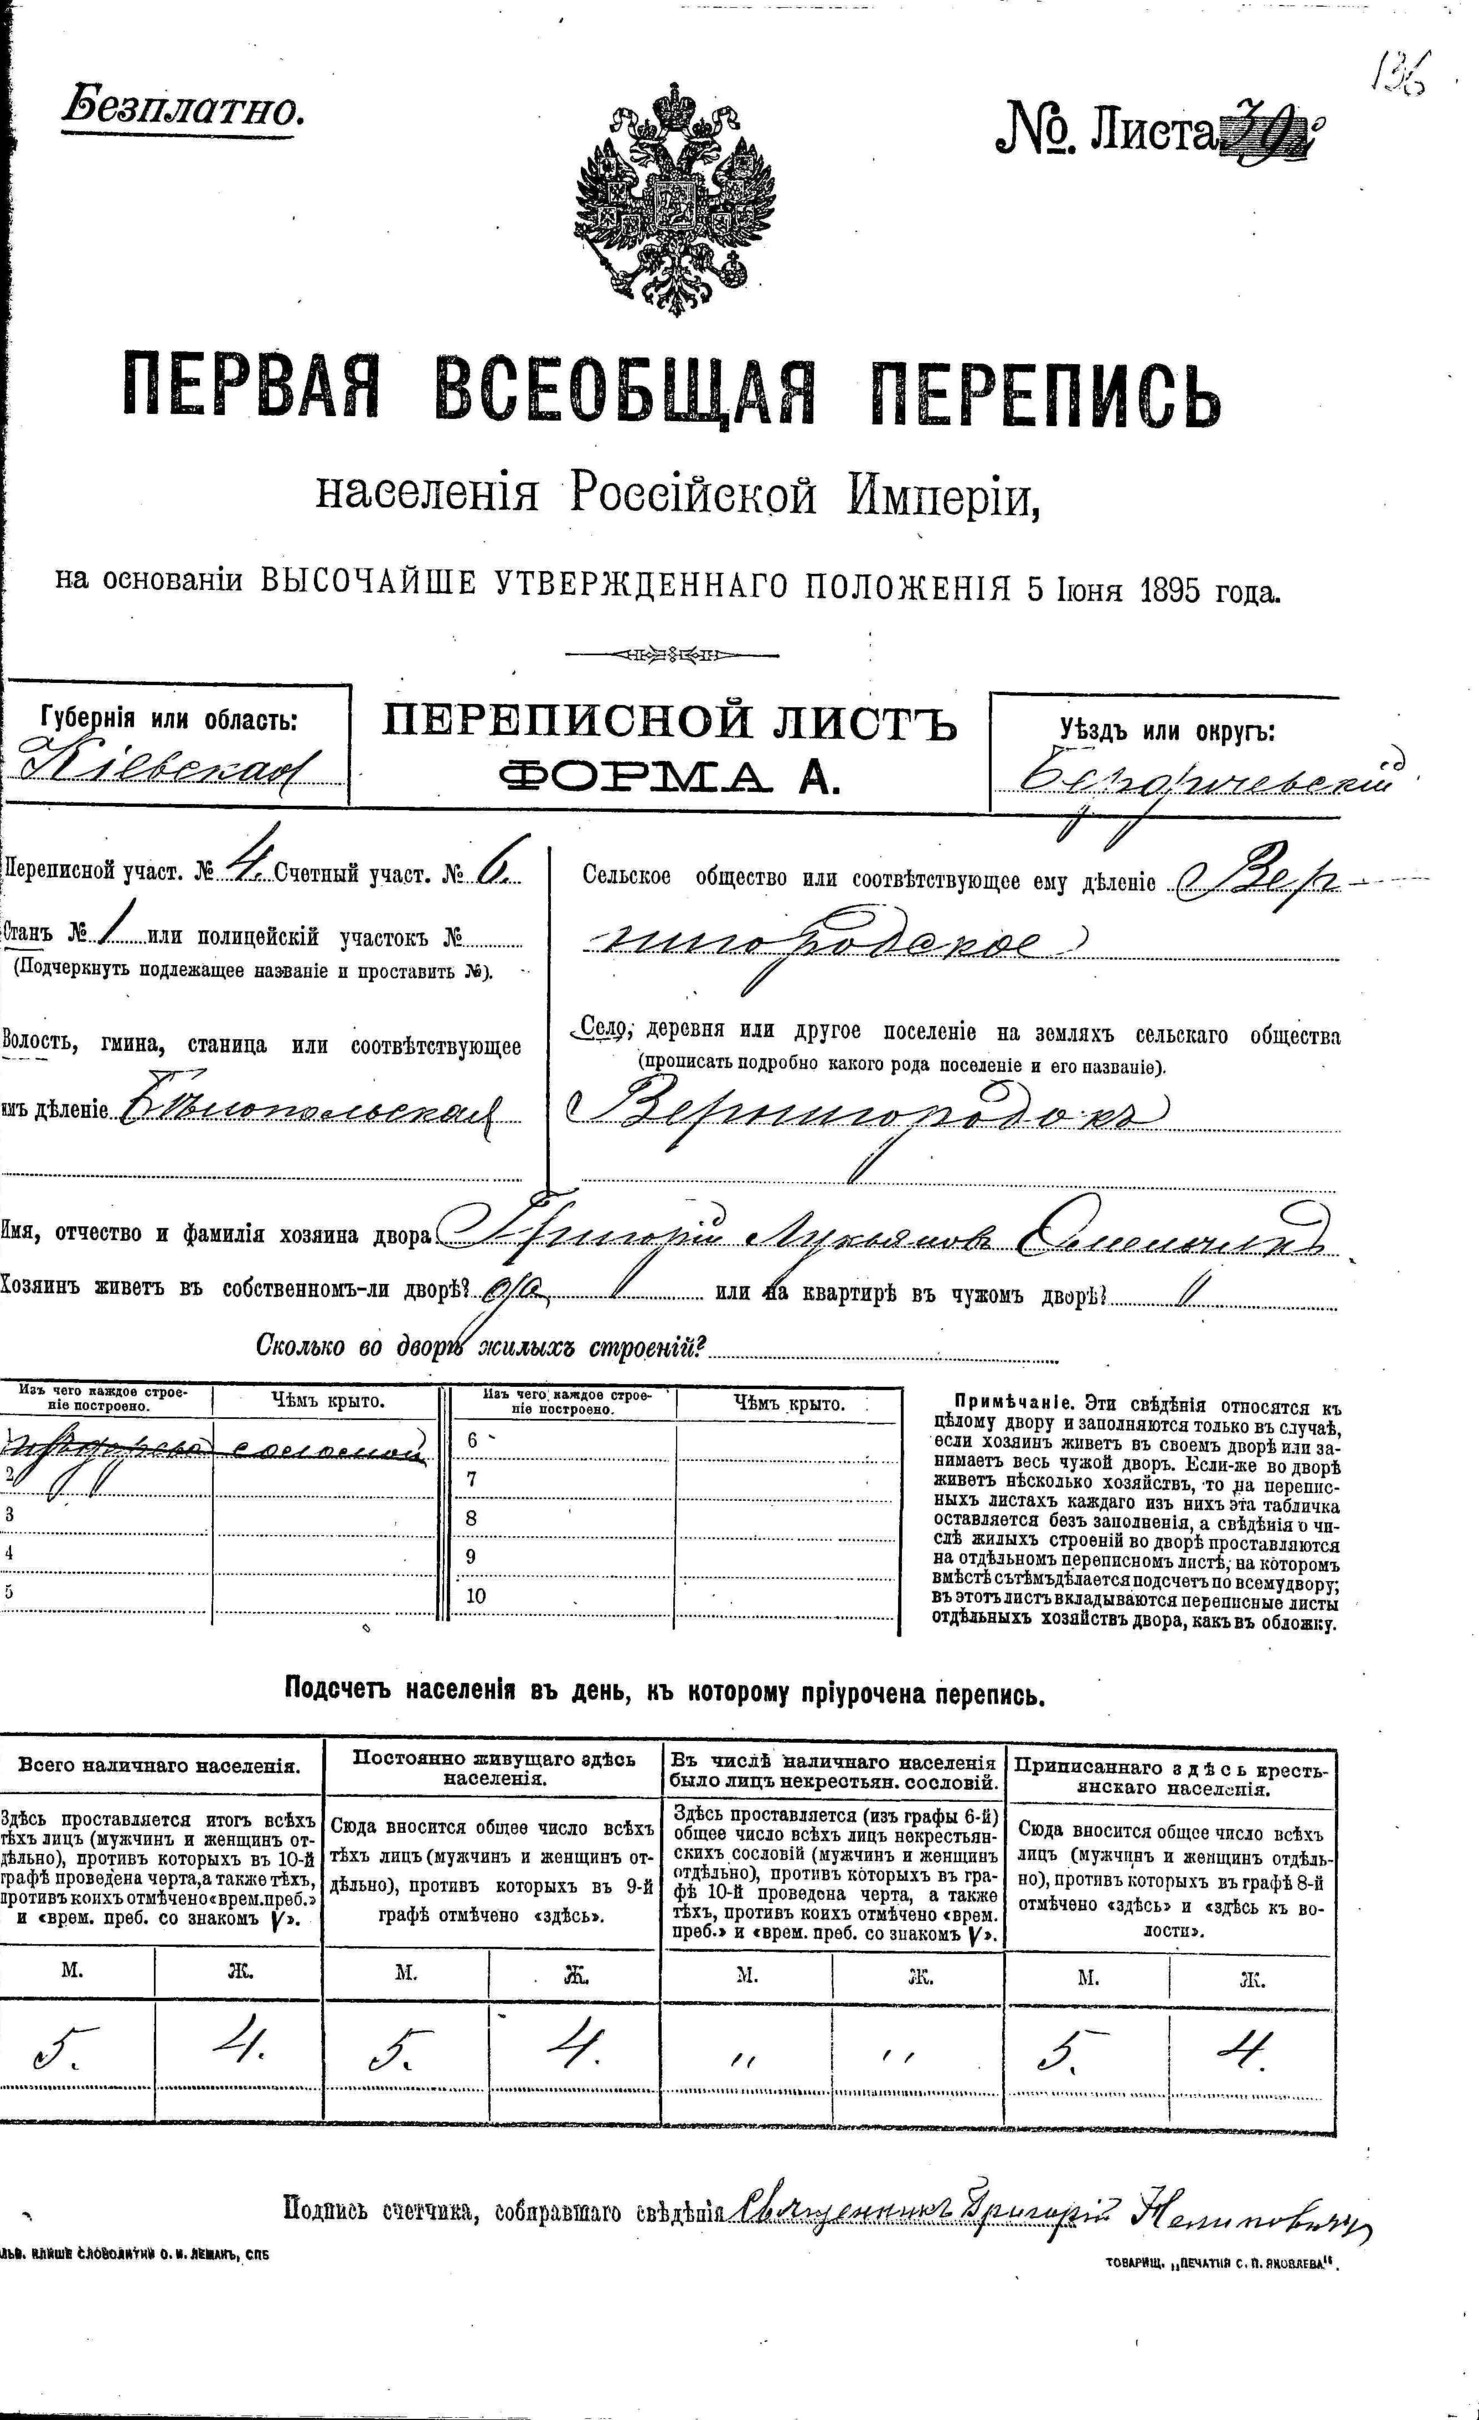 136
Безплатно.
№. Листа
ПЕРВАЯ ВСЕОБЩАЯ ПЕРЕПИСЬ
населенія Россійской Имперіи,
на основаніи ВЫСОЧАЙШЕ УТВЕРЖДЕННАГО ПОЛОЖЕНІЯ 5 Іюня 1895 года.
Губернія или область:
Кіевская
ПЕРЕПИСНОЙ ЛИСТЪ
ФОРМА А.
Уѣздъ или округъ:
Бердичевскій
Переписной участ. № 4. Счетный участ. № 6.
Станъ № 1 или полицейскій участокъ №
(Подчеркнуть подлежащее названіе и проставить №).
Волость, гмина, станица или соотвѣтствующее
имъ дѣленіе Бѣлопольская
Сельское общество или соотвѣтствующее ему дѣленіе Вер-
нигородское
Село, деревня или другое поселеніе на земляхъ сельскаго общества
(прописать подробно какого рода поселеніе и его названіе).
Вернигородокъ
Имя, отчество и фамилія хозяина двора Григорій Лукьяновъ
Хозяинъ живетъ въ собственномъ-ли дворѣ? да или на квартирѣ въ чужомъ дворѣ?
Сколько во дворѣ жилыхъ строеній?
Изъ чего каждое строе-
ніе построено.
Чѣмъ крыто.
Изъ чего каждое строе-
ніе построено.
Чѣмъ крыто.
1 соломой
2
3
4
5
6
7
8
9
10
Примѣчаніе. Эти свѣдѣнія относятся къ
цѣлому двору и заполняются только въ случаѣ,
если хозяинъ живетъ въ своемъ дворѣ или за-
нимаетъ весь чужой дворъ. Если-же во дворѣ
живетъ нѣсколько хозяйствъ, то на перепис-
ныхъ листахъ каждаго изъ нихъ эта табличка
оставляется безъ заполненія, а свѣдѣнія о чи-
слѣ жилыхъ строеній во дворѣ проставляются
на отдѣльномъ переписномъ листѣ, на которомъ
вмѣстѣ съ тѣмъ дѣлается подсчетъ по всему двору;
въ этотъ листъ вкладываются переписные листы
отдѣльныхъ хозяйствъ двора, какъ въ обложку.
Подсчетъ населенія въ день, къ которому пріурочена перепись.
Всего наличнаго населенія.
Постоянно живущаго здѣсь
населенія.
Въ числѣ наличнаго населенія
было лицъ некрестьян. сословій.
Приписаннаго здѣсь кресть-
янскаго населенія.
Здѣсь проставляется итогъ всѣхъ
тѣхъ лицъ (мужчинъ и женщинъ от-
дѣльно), противъ которыхъ въ 10-й
графѣ проведена черта, а также тѣхъ,
противъ коихъ отмѣчено «врем. преб.»
и «врем. преб. со знакомъ V».
Сюда вносится общее число всѣхъ
тѣхъ лицъ (мужчинъ и женщинъ от-
дѣльно), противъ которыхъ въ 9-й
графѣ отмѣчено «здѣсь».
Здѣсь проставляется (изъ графы 6-й)
общее число всѣхъ лицъ некрестьян-
скихъ сословій (мужчинъ и женщинъ
отдѣльно), противъ которыхъ въ гра-
фѣ 10-й проведена черта, а также
тѣхъ, противъ коихъ отмѣчено «врем.
преб.» и «врем. преб. со знакомъ V».
Сюда вносится общее число всѣхъ
лицъ (мужчинъ и женщинъ отдѣль-
но), противъ которыхъ въ графѣ 8-й
отмѣчено «здѣсь» и «здѣсь къ во-
лости».
М. Ж. М. Ж. М. Ж. М. Ж.
5. 4. 5. 4. " " 5. 4.
Подпись счетчика, собиравшаго свѣдѣнія Священникъ Григорій
СЛОВОЛИТНИ О. И. ЛЕМАНЪ, СПБ
ТОВАРИЩ. „ПЕЧАТНЯ С. П. ЯКОВЛЕВА".